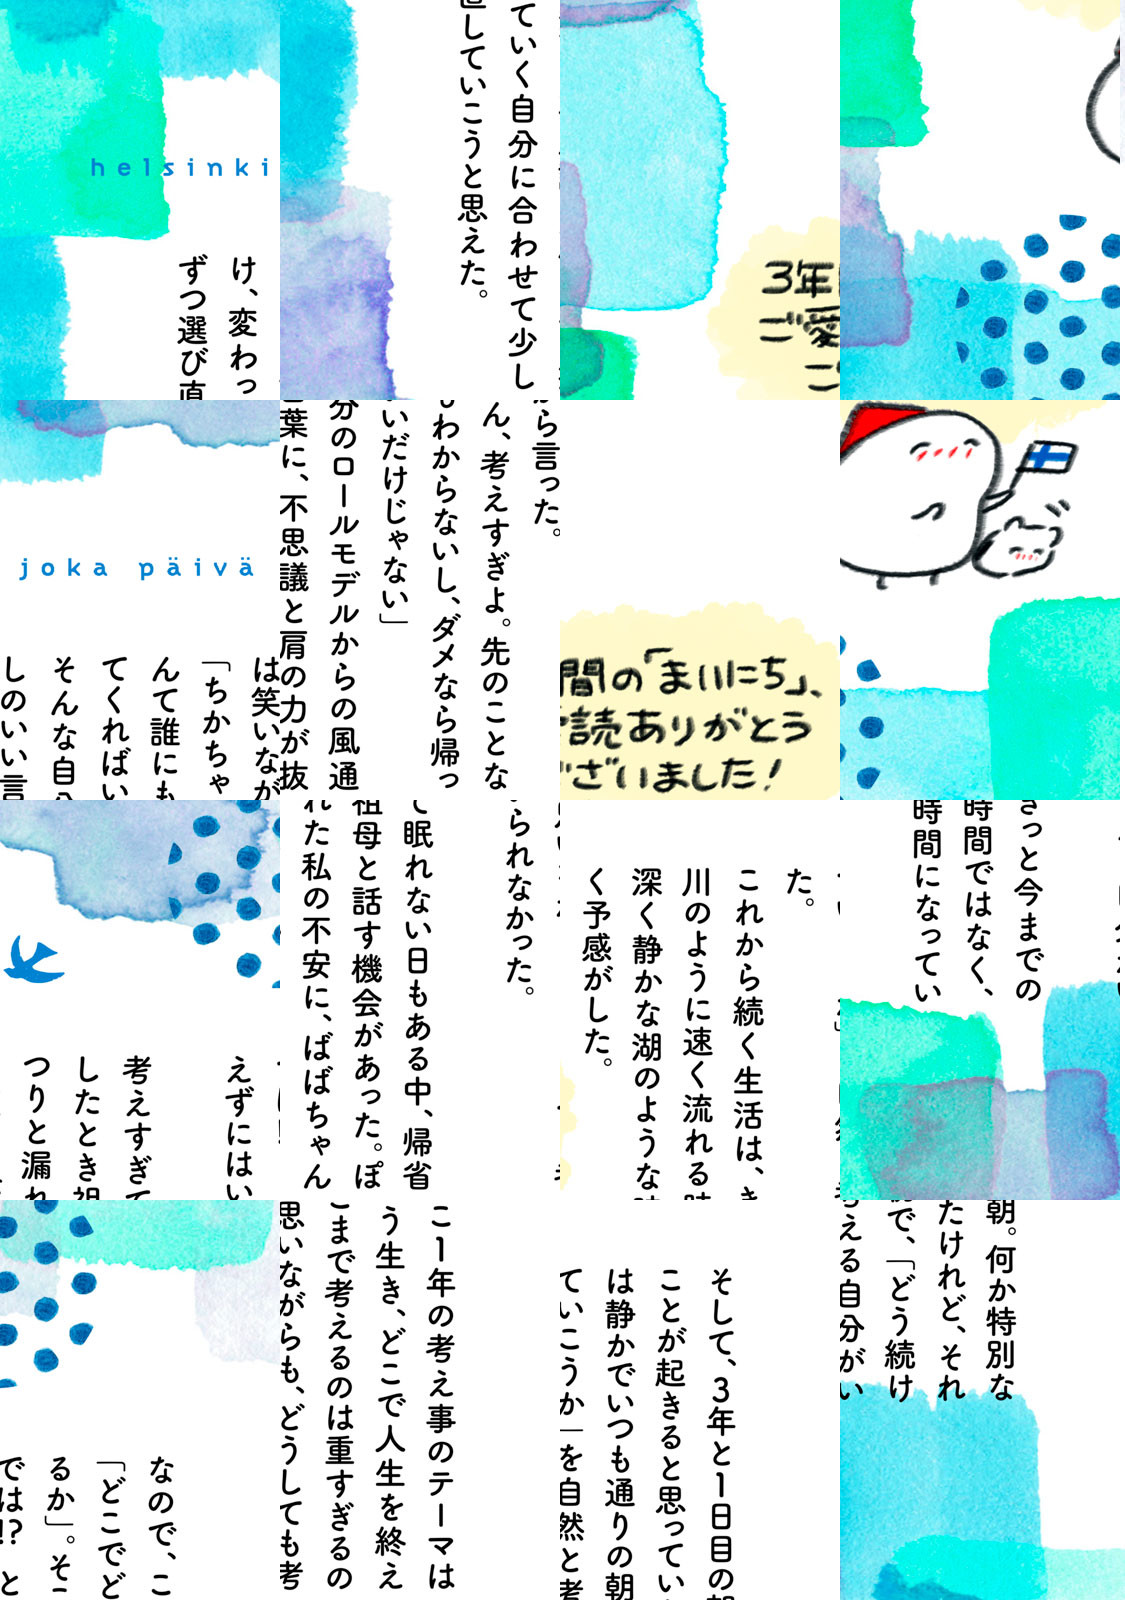 helsinki
joka päivä
なので、ここ1年の考え事のテーマは
「どこでどう生き、どこで人生を終え
るか」。そこまで考えるのは重すぎるの
では!? と思いながらも、どうしても考
えずにはいられなかった。
考えすぎて眠れない日もある中、帰省
したとき祖母と話す機会があった。ぽ
つりと漏れた私の不安に、ばばちゃん
は笑いながら言った。
「ちかちゃん、考えすぎよ。先のことな
んて誰にもわからないし、ダメなら帰っ
てくればいいだけじゃない」
そんな自分のロールモデルからの風通
しのいい言葉に、不思議と肩の力が抜
け、変わっていく自分に合わせて少し
ずつ選び直していこうと思えた。
そして、3年と1日目の朝。何か特別な
ことが起きると思っていたけれど、それ
は静かでいつも通りの朝で、「どう続け
ていこうか」を自然と考える自分がい
た。
これから続く生活は、きっと今までの
川のように速く流れる時間ではなく、
深く静かな湖のような時間になってい
く予感がした。
3年間の「まいにち」、
ご愛読ありがとう
ございました!